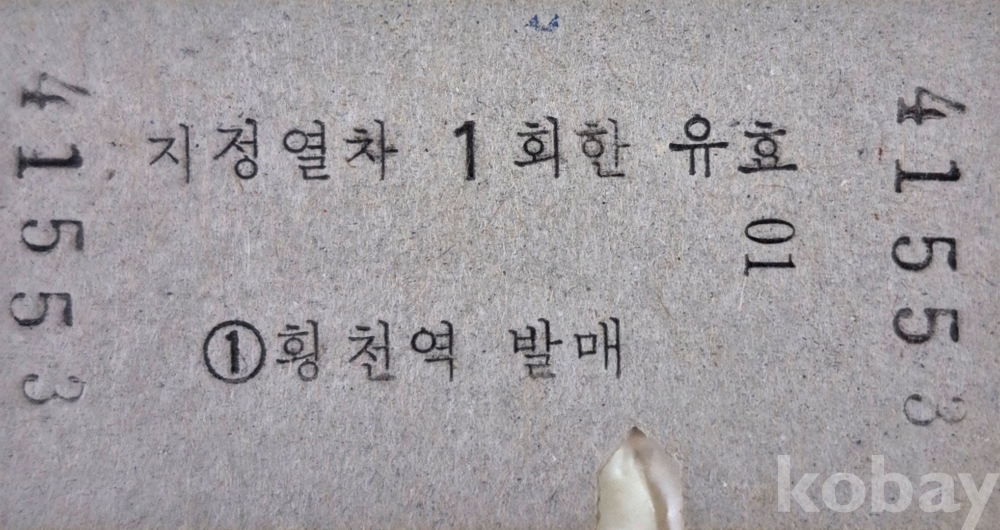 지정열차 1 회한 유효
01
① 횡천역 발매
41553
41553
kobay